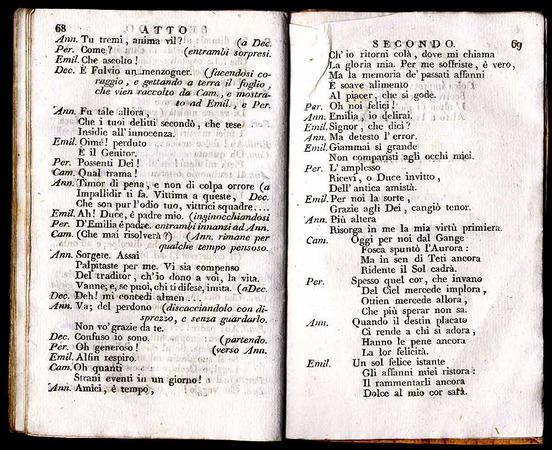 68 ATTO
Ann. Tu tremi, anima vil? (a Dec.
Per. Come? (entrambi sorpresi.
Emil. Che ascolto!
Dec. E Fulvio un menzogner. (facendosi co-
raggio, e gettando a terra il foglio,
che vien raccolto da Cam., e mostra-
to ad Emil., e Per.
Ann. Fu tale allora,
Che i tuoi delitti secondò, che tese
Insidie all'innocenza.
Emil. Oimé! perduto
E il Genitor.
Per. Possenti Dei!
Cam. Qual trama!
Ann. Timor di pena, e non di colpa orrore (a
Impallidir ti fa. Vittima a queste, Dec.
Che son pur l'odio tuo, vittrici squadre....
Emil. Ah! Duce, è padre mio. (inginocchiandosi
Per. D'Emilia è padre. entrambi innanzi ad Ann.
Cam. (Che mai risolverà?) (Ann. rimane per
qualche tempo pensoso.
Ann. Sorgete. Assai
Palpitaste per me. Vi sia compenso
Del traditor, ch'io dono a voi, la vita.
Vanne; e, se puoi, chi ti difese, imita. (a Dec.
Dec. Deh! mi concedi almen....
Ann. Va; del perdono (discacciandolo con di-
sprezzo, e senza guardarlo.
Non vo' grazie da te.
Dec. Confuso io sono. (partendo.
Per. Oh generoso! (verso Ann.
Emil. Alfin respiro.
Cam. Oh quanti
Strani eventi in un giorno!
Ann. Amici, è tempo,
SECONDO. 69
Ch'io ritorni colà, dove mi chiama
La gloria mia. Per me soffriste, è vero,
Ma la memoria de' passati affanni
E soave alimento
Al piacer, che si gode.
Per. Oh noi felici!
Ann. Emilia, io delirai.
Emil. Signor, che dici?
Ann. Ma detesto l'error.
Emil. Giammai si grande
Non comparisti agli occhi miei.
Per. L'amplesso
Ricevi, o Duce invitto,
Dell'antica amistà.
Emil. Per noi la sorte,
Grazie agli Dei, cangiò tenor.
Ann. Più altera
Risorga in me la mia virtù primiera.
Cam. Oggi per noi dal Gange
Fosca spuntò l'Aurora:
Ma in sen di Teti ancora
Ridente il Sol cadrà.
Per. Spesso quel cor, che invano
Del Ciel mercede implora,
Ottien mercede allora,
Che più sperar non sa.
Ann. Quando il destin placato
Ci rende a chi si adora,
Hanno le pene ancora
La lor felicità.
Emil. Un sol felice istante
Gli affanni miei ristora:
Il rammentarli ancora
Dolce al mio cor sarà.